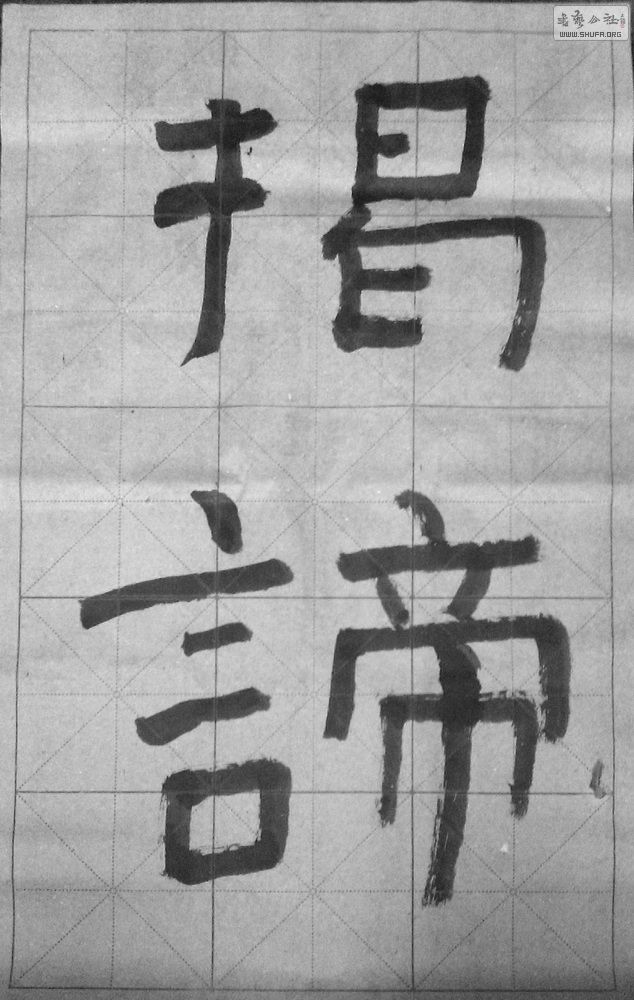 揭
諦
書藝公社
WWW.SHUFA.ORG